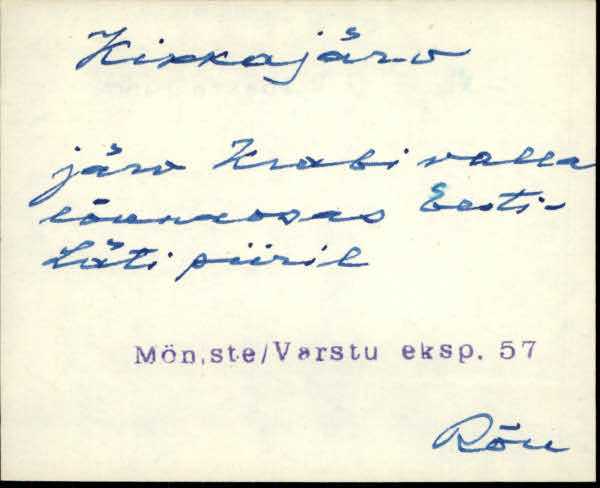 Kikkajärv
järv Krabi valla
lõunaosas Eesti-
Läti piiril
Mõn,ste/Varstu eksp. 57
Rõu